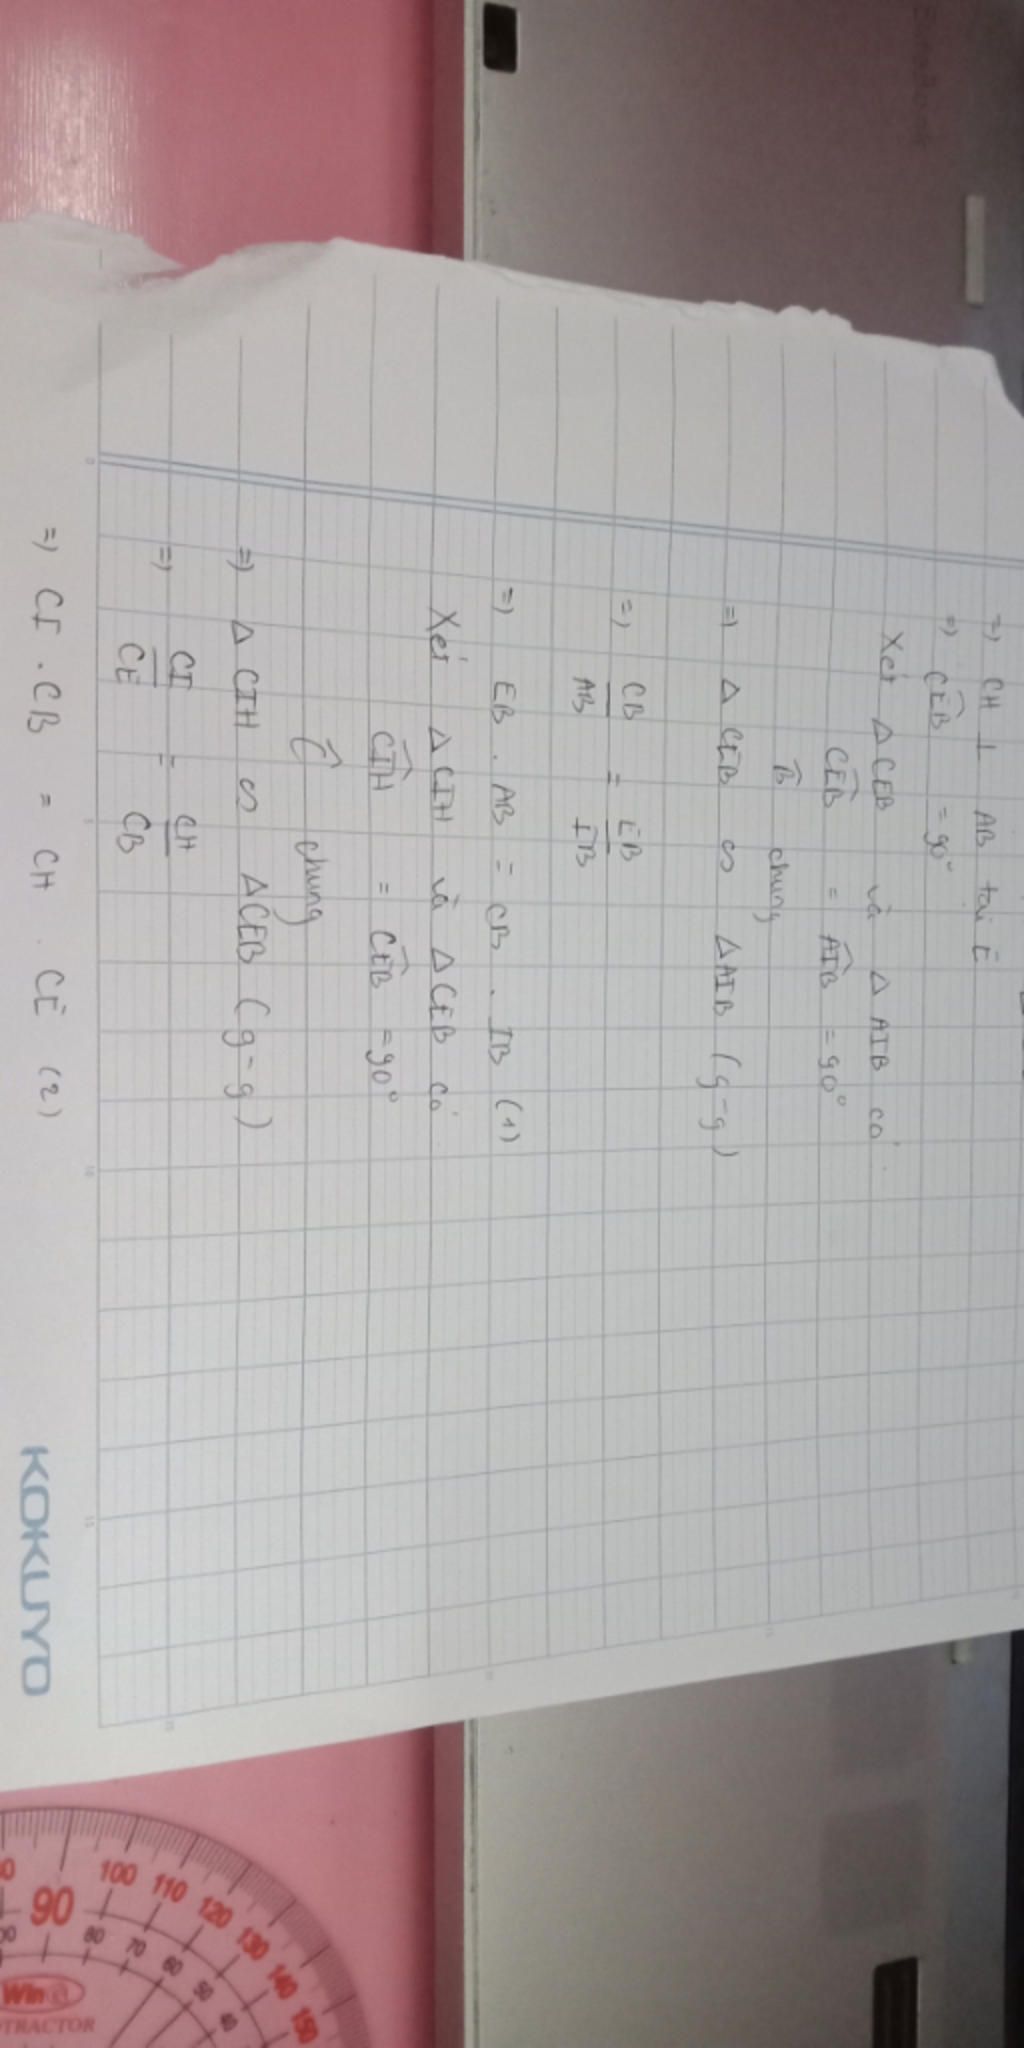 =) CH ⊥ AB tại E
=) CEB^ = 90°
Xét Δ CEB và Δ AIB có
CEB^ = AIB^ = 90°
B^ chung
=) Δ CEB ∽ Δ AIB (g-g)
=) CB/AB = EB/IB
=) EB . AB = CB . IB (1)
Xét Δ CIH và Δ CEB có
CIH^ = CEB^ = 90°
C^ chung
=) Δ CIH ∽ Δ CEB (g-g)
=) CI/CE = CH/CB
=) CI . CB = CH . CE (2)
KOKUYO
90 100 110 120 130 140 150
80 70 60 50 40
Win